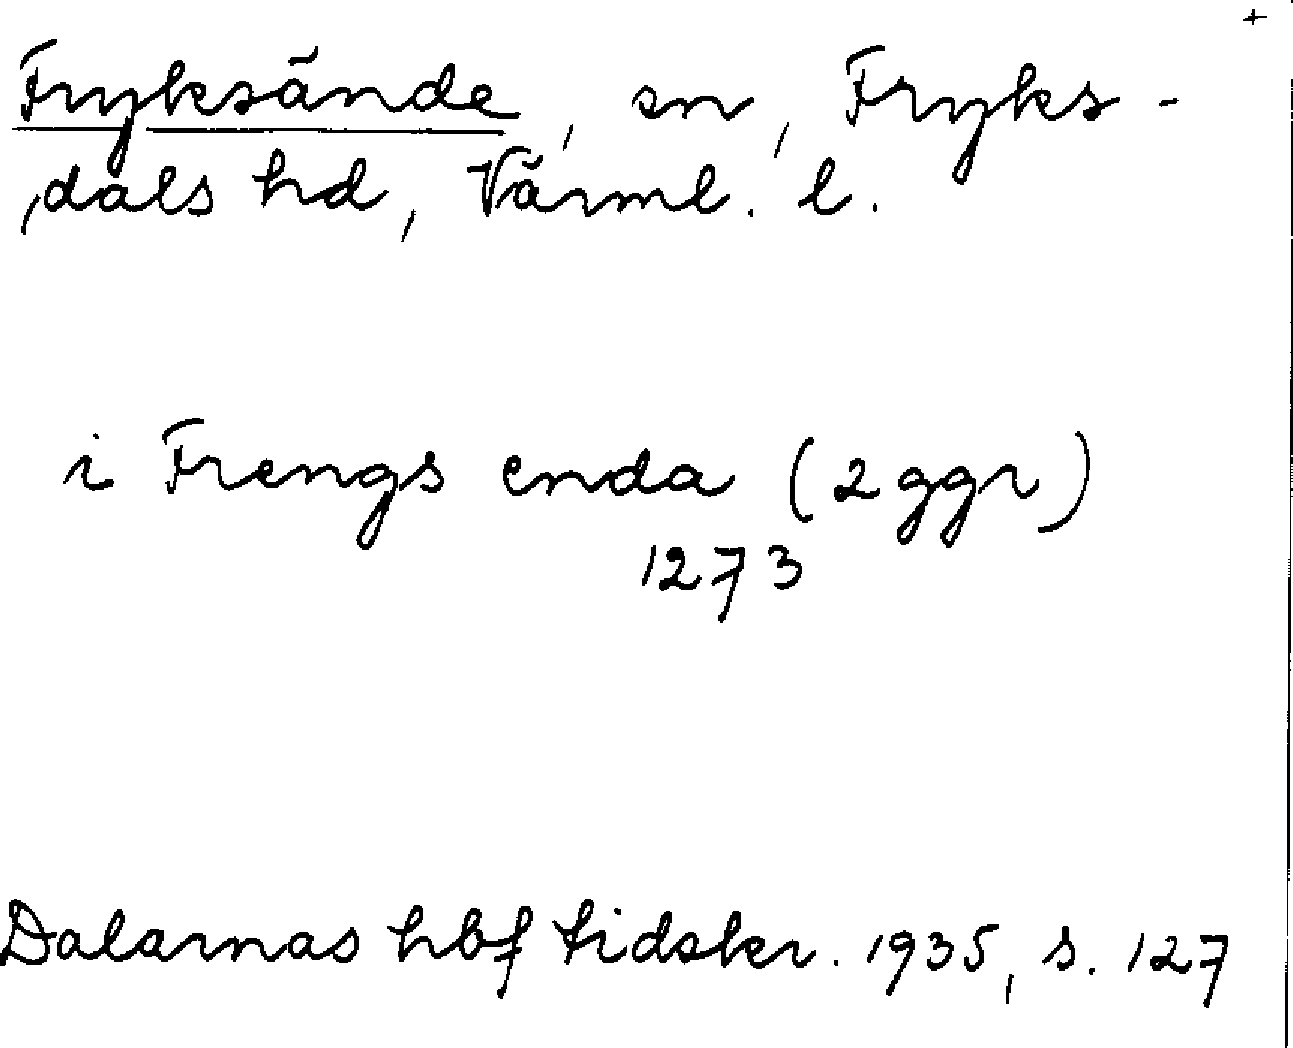 +
Fryksände, sn, Fryks-
dals hd, Värml. l.
i Frengs enda (2 ggr)
1273
Dalarnas hbf tidskr. 1935, s. 127